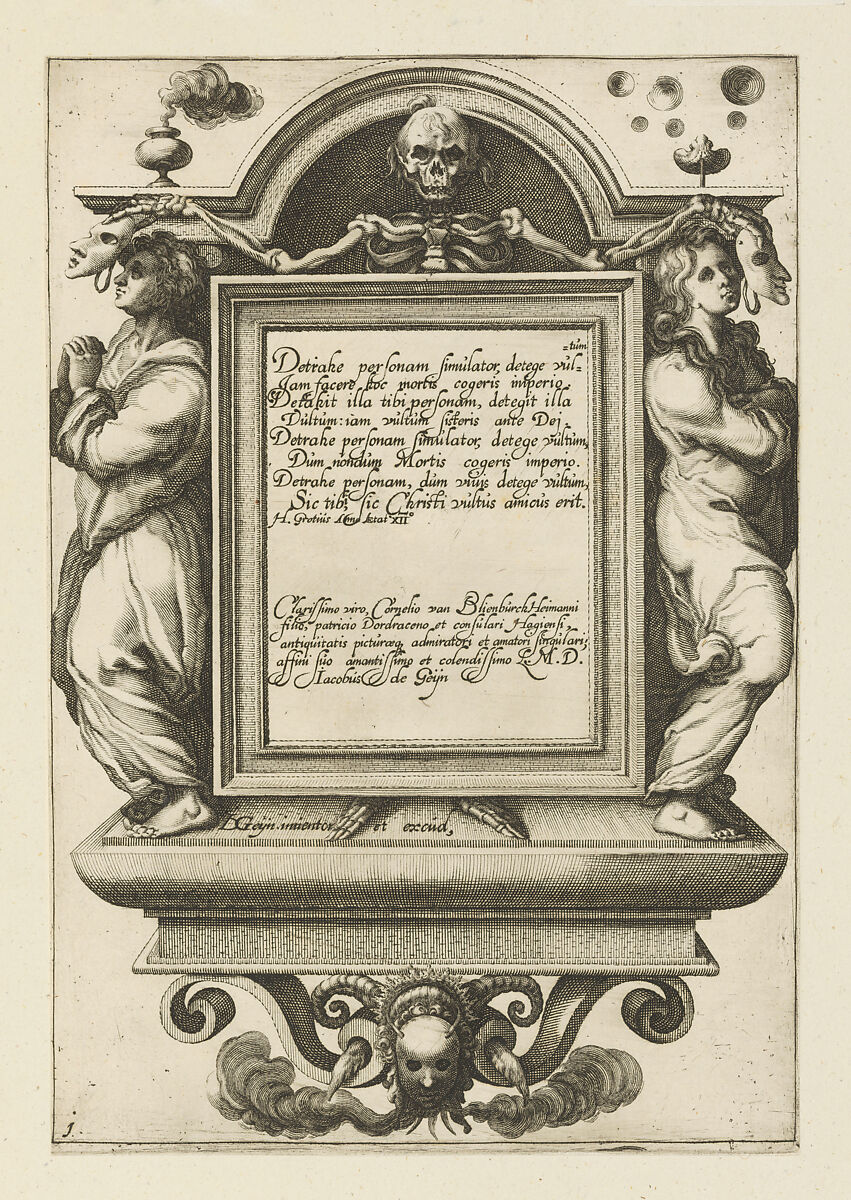 Detrahe personam simulator, detege vul=
=tum
Iam facere hoc mortis cogeris imperio.
Detrahit illa tibi personam, detegit illa
Vultum: iam vultum sisteris ante Dei.
Detrahe personam simulator, detege vultum,
Dum nondum Mortis cogeris imperio.
Detrahe personam, dum vivis detege vultum,
Sic tibi, sic Christi vultus amicus erit.
H. Grotius Anno ætat XII°
Clarissimo viro, Cornelio van Blienburch Heimanni
filio, patricio Dordraceno et consulari Hagiensi,
antiquitatis picturæq. admiratori et amatori singulari;
affini suo amantissimo et colendissimo L. M. D.
Iacobus de Geijn
DGeijn inventor et excud,
1